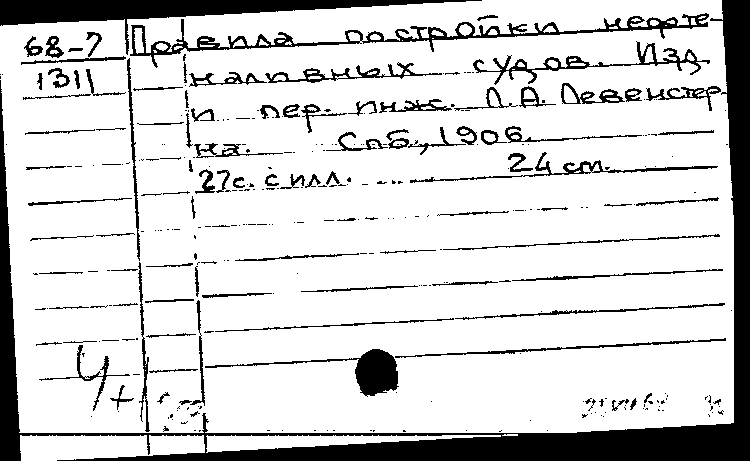 68-7 Правила постройки нефте-
1311 наливных судов. Изд.
и пер. инж. Л.А. Левенстер-
на. Спб., 1906.
27с. с илл. 24 cm.